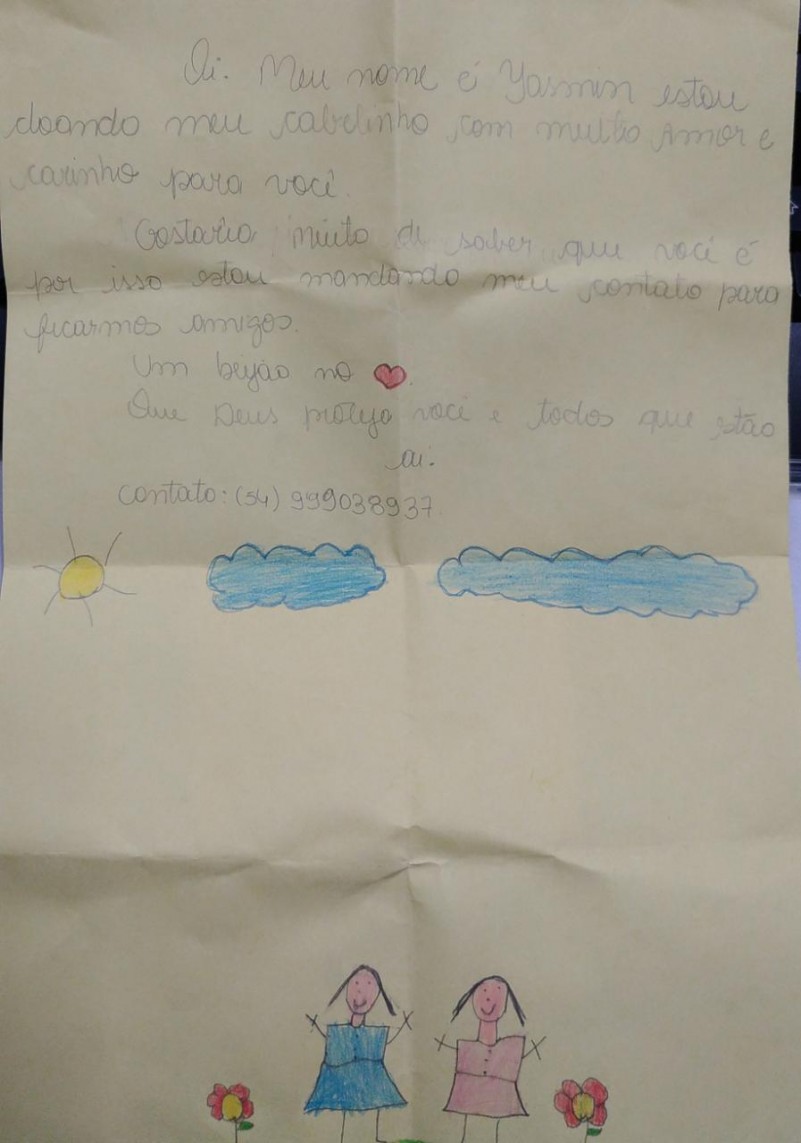 Oi. Meu nome é Yasmin estou
doando meu cabelinho com muito Amor e
carinho para você.
Gostaria muito de saber que você é
por isso estou mandando meu contato para
ficarmos amigos.
Um beijão no
Que Deus proteja você e todos que estão
ai.
contato: (54) 999038937